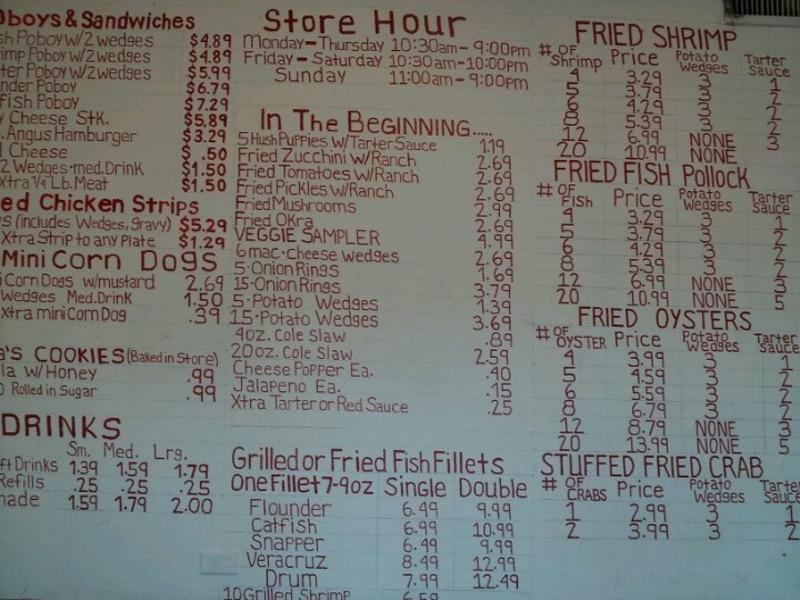 oboys & Sandwiches
sh Poboy w/2 wedges $4.89
imp Poboy w/2 wedges $4.89
ter Poboy w/2 wedges $5.99
nder Poboy $6.79
fish Poboy $7.29
y Cheese Stk. $5.89
. Angus Hamburger $3.29
l Cheese $ .50
2 Wedges-med. Drink $1.50
Xtra 1/4 Lb. Meat $1.50
ed Chicken Strips
s (includes Wedges, gravy) $5.29
Xtra Strip to any Plate $1.29
Mini Corn Dogs
i Corn Dogs w/mustard 2.69
Wedges Med. Drink 1.50
xtra mini Corn Dog .39
a's COOKIES (Baked in Store)
la w/ Honey .99
Rolled in Sugar .99
DRINKS
Sm. Med. Lrg.
ft Drinks 1.39 1.59 1.79
Refills .25 .25 .25
nade 1.59 1.79 2.00
Store Hour
Monday-Thursday 10:30am-9:00pm
Friday-Saturday 10:30am-10:00pm
Sunday 11:00am-9:00pm
In The Beginning.....
5 Hush Puppies w/Tarter Sauce 1.19
Fried Zucchini w/Ranch 2.69
Fried Tomatoes w/Ranch 2.69
Fried Pickles w/Ranch 2.69
Fried Mushrooms 2.99
Fried Okra 2.69
VEGGIE SAMPLER 4.99
6 mac-Cheese Wedges 2.69
5-Onion Rings 1.69
15-Onion Rings 3.79
5-Potato Wedges 1.39
15-Potato Wedges 3.69
4oz. Cole Slaw .89
20oz. Cole Slaw 2.59
Cheese Popper Ea. .40
Jalapeno Ea. .15
Xtra Tarter or Red Sauce .25
Grilled or Fried Fish Fillets
One Fillet 7-9oz Single Double
Flounder 6.49 9.99
Catfish 6.99 10.99
Snapper 6.49 9.99
Veracruz 8.49 12.99
Drum 7.99 12.49
10 Grilled Shrimp 6.59
FRIED SHRIMP
# OF Shrimp Price Potato Wedges Tarter Sauce
4 3.29 3 1
5 3.79 3 2
6 4.29 3 2
8 5.39 3 2
12 6.99 NONE 3
20 10.99 NONE
FRIED FISH Pollock
# OF Fish Price Potato Wedges Tarter Sauce
4 3.29 3 1
5 3.79 3 2
6 4.29 3 2
8 5.39 3 2
12 6.99 NONE 3
20 10.99 NONE 5
FRIED OYSTERS
# OF OYSTER Price Potato Wedges Tarter Sauce
4 3.99 3 1
5 4.59 3 2
6 5.59 3 2
8 6.79 3 2
12 8.79 NONE 3
20 13.99 NONE 5
STUFFED FRIED CRAB
# OF CRABS Price Potato Wedges Tarter Sauce
1 2.99 3 1
2 3.99 3 2